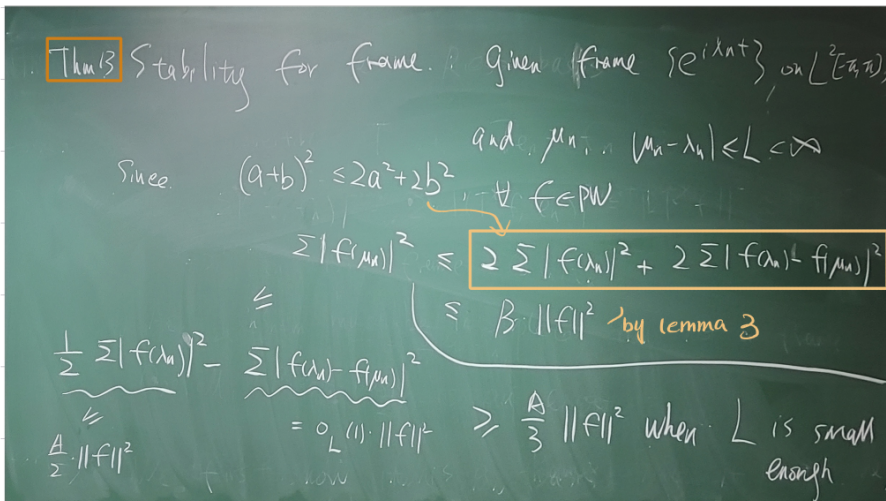 Thm 13 Stability for frame. Given frame {e^{iλnt}}, on L²[-π,π),
and μn, |μn-λn| ≤ L < ∞
Since (a+b)² ≤ 2a²+2b², ∀ f∈PW
Σ|f(μn)|² ≤ 2Σ|f(λn)|² + 2Σ|f(λn)-f(μn)|²
≤ B·||f||² by lemma 3
≤
1/2 Σ|f(λn)|² - Σ|f(λn)-f(μn)|²
≤
A/2·||f||²
= o_L(1)·||f||²
≥ A/3 ||f||² when L is small
enough